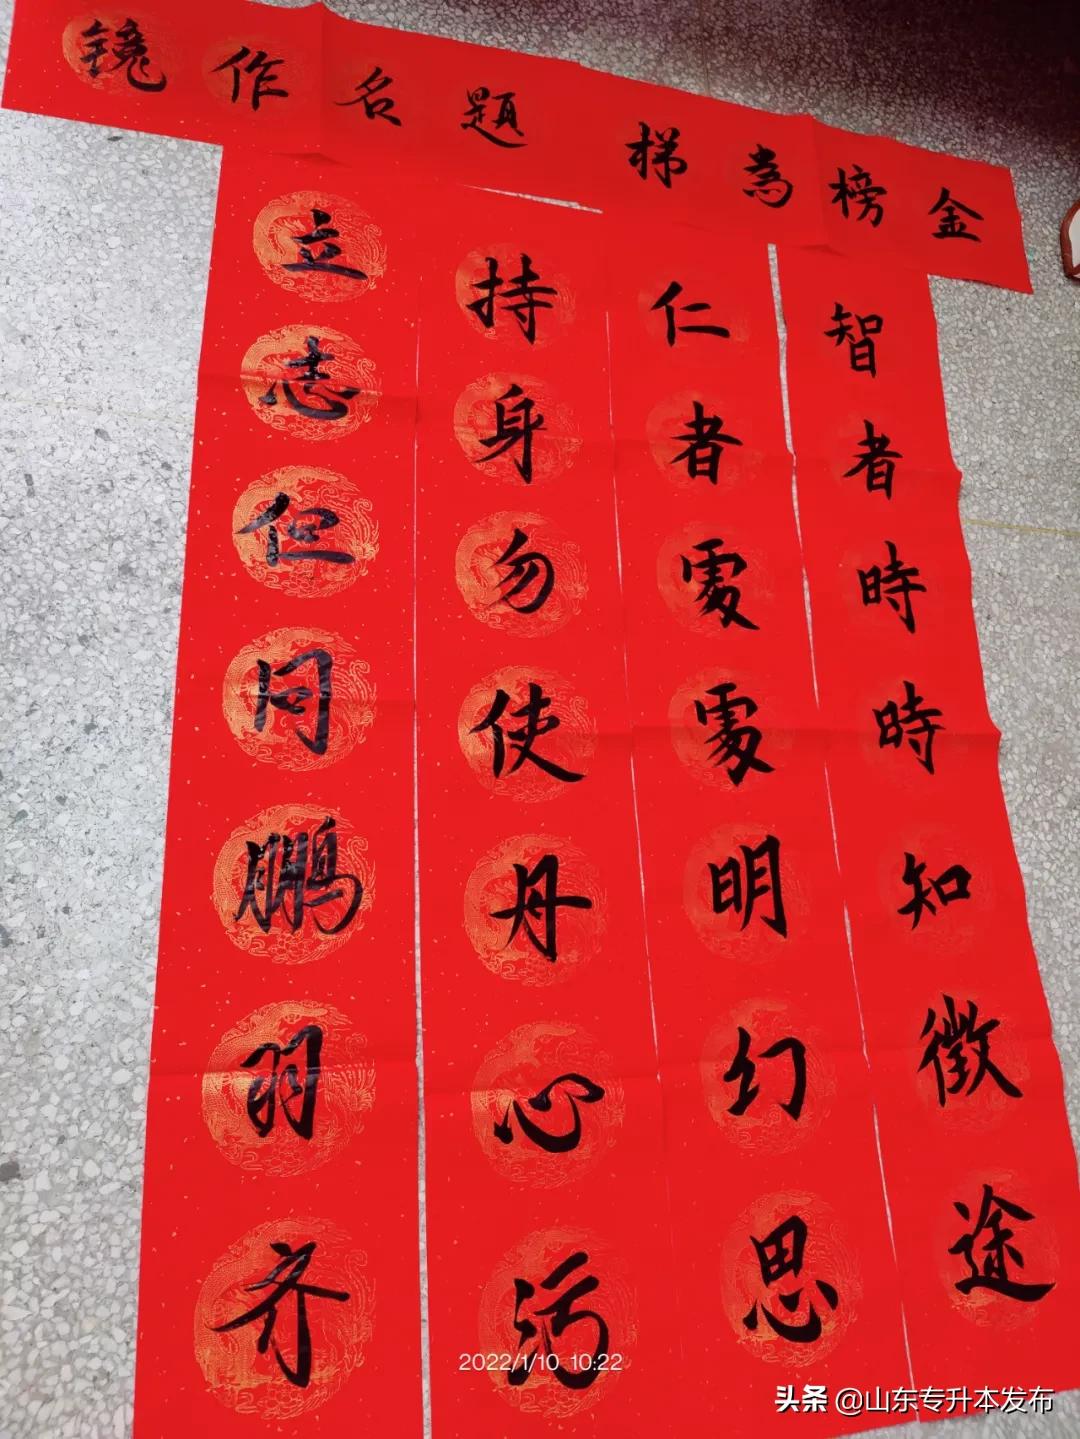 金榜為梯 題名作鏡
智者時時知徵途
仁者處處明幻思
持身勿使丹心污
立志但同鵬羽齐
2022/1/10 10:22
头条 @山东专升本发布